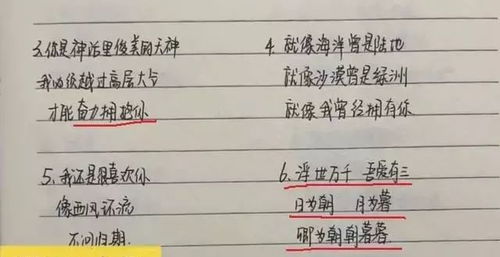 3.你是神话里俊美的天神
我必须越过高层大气
才能奋力拥抱你
4.就像海洋曾是陆地
就像沙漠曾是绿洲
就像我曾经拥有你
5.我还是很喜欢你
像西风环流
不问归期.
6.浮世万千 吾爱有三
日为朝 月为暮
卿为朝朝暮暮